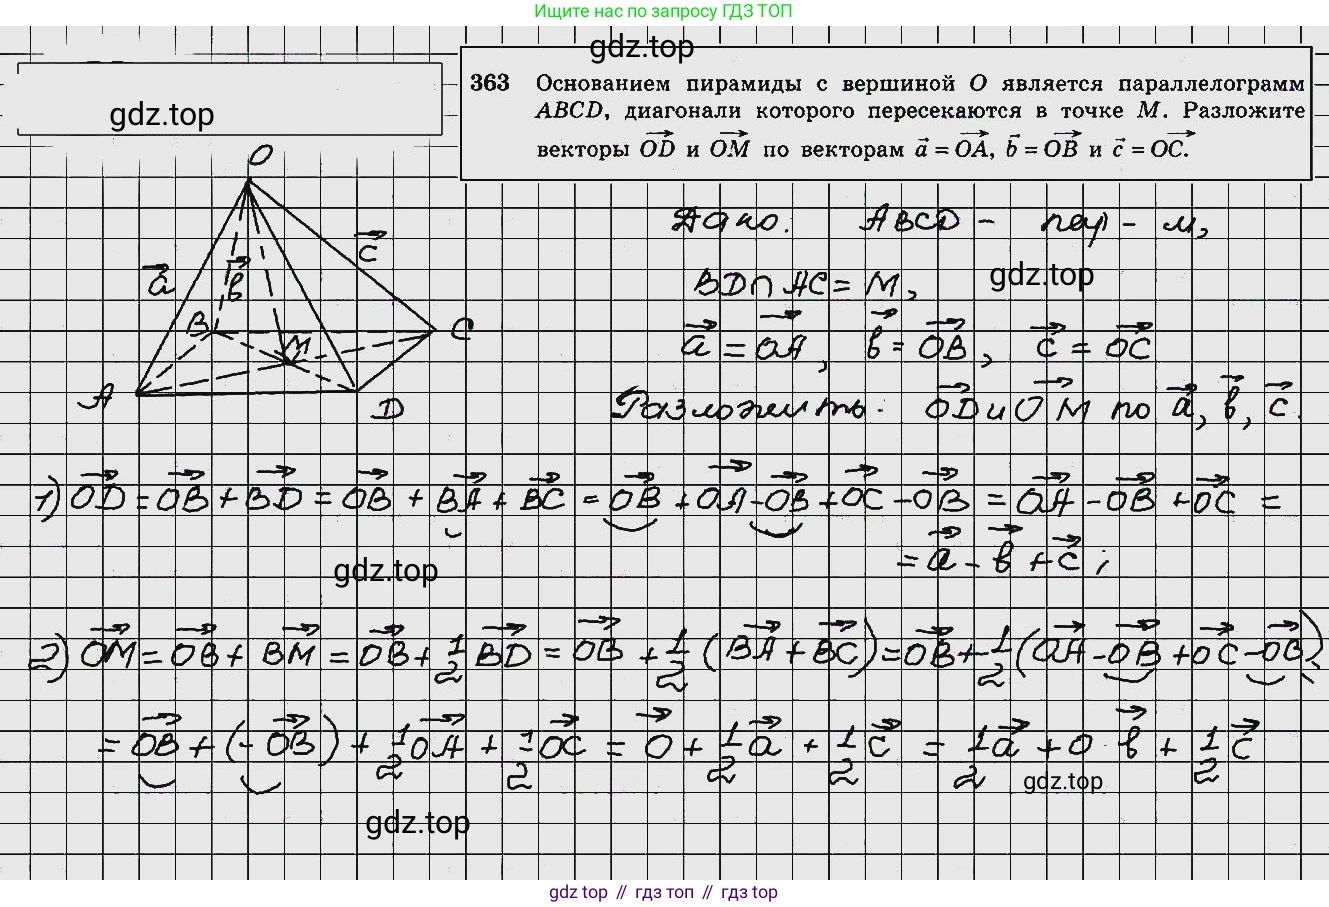 Ищите нас по запросу ГДЗ ТОП
gdz.top
gdz.top
363 Основанием пирамиды с вершиной O является параллелограмм
ABCD, диагонали которого пересекаются в точке M. Разложите
векторы OD и OM по векторам a = OA, b = OB и c = OC.
O
a
b
c
B
M
C
A
D
Дано: ABCD – пар-м,
BD∩AC = M,
gdz.top
a = OA, b = OB, c = OC
Разложить: OD и OM по a, b, c.
1) OD = OB + BD = OB + BA + BC = OB + OA - OB + OC - OB = OA - OB + OC =
= a - b + c;
gdz.top
2) OM = OB + BM = OB + 1/2 BD = OB + 1/2 (BA + BC) = OB + 1/2 (OA - OB + OC - OB) =
= OB + (-OB) + 1/2 OA + 1/2 OC = 0 + 1/2 a + 1/2 c = 1/2 a + 0 b + 1/2 c
gdz.top
gdz.top
gdz top // гдз топ // gdz top